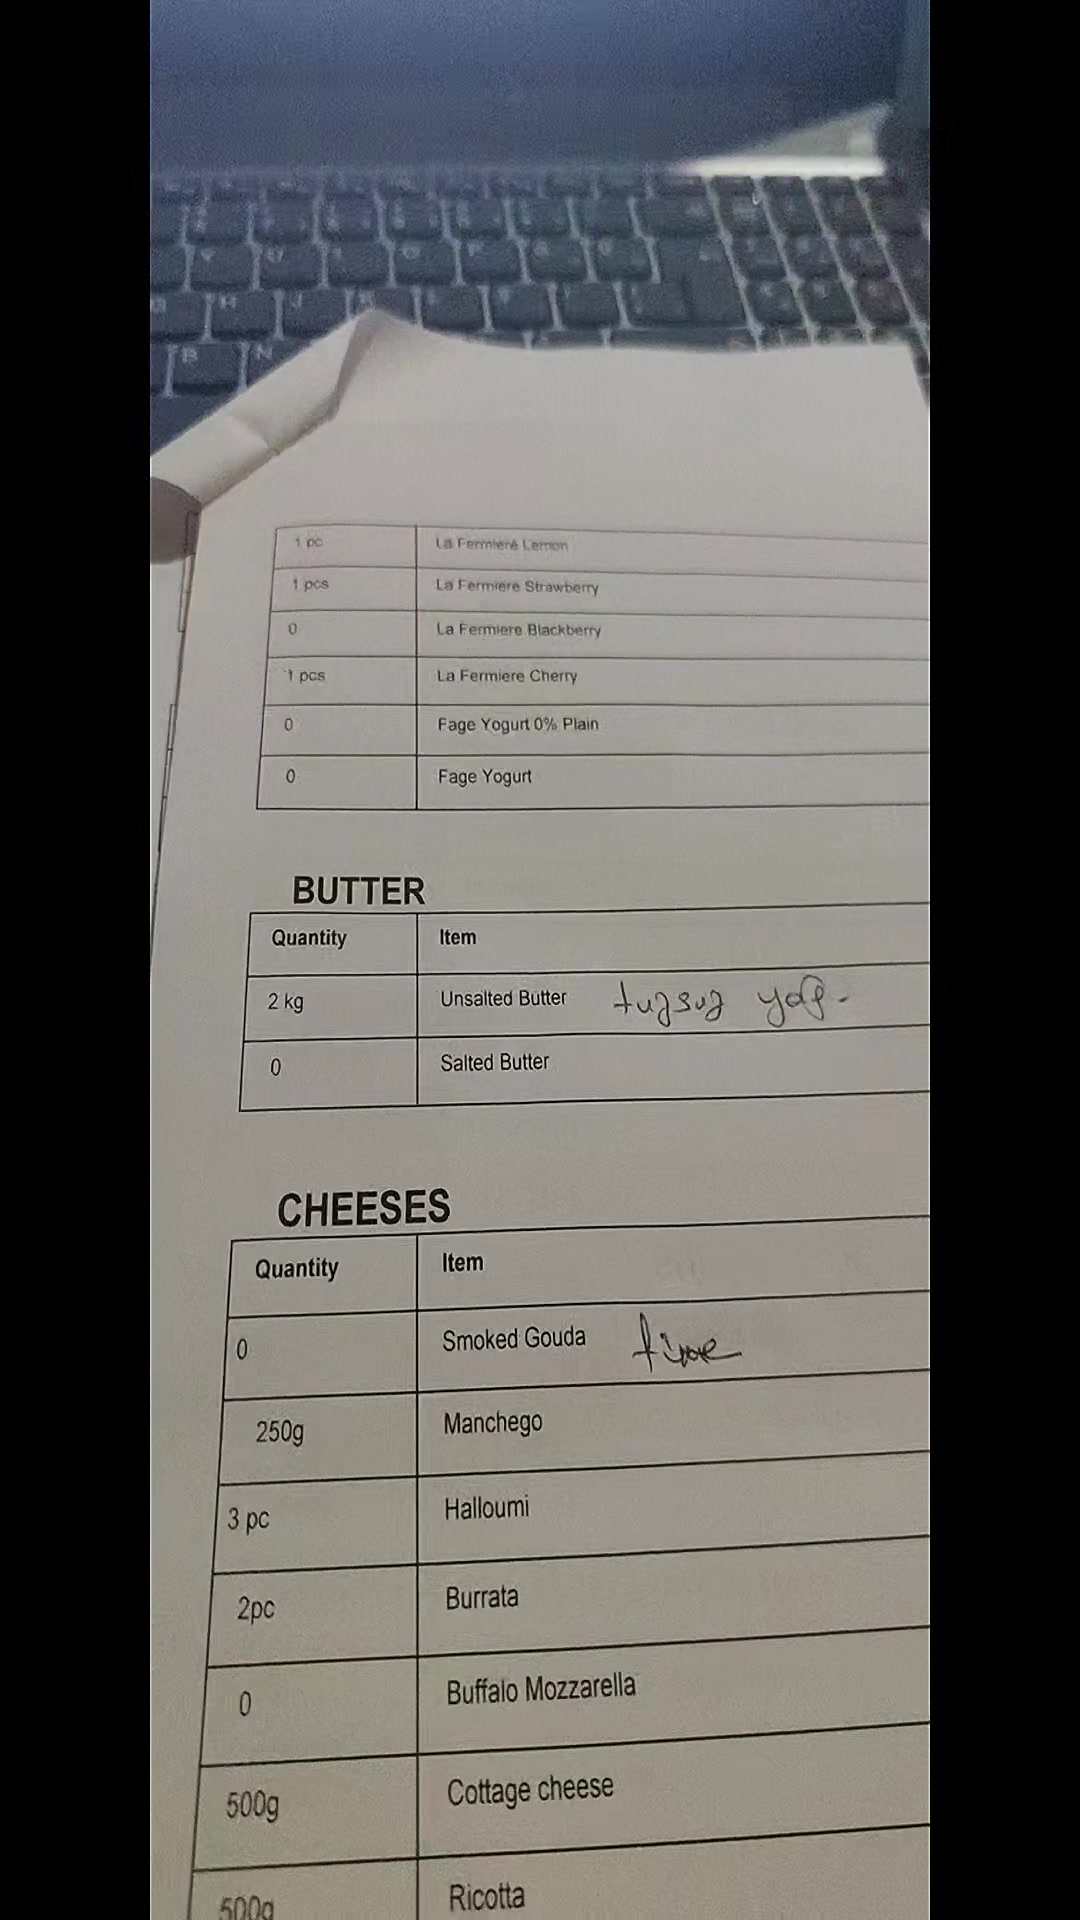 1 pc La Fermiere Lemon
1 pcs La Fermiere Strawberry
0 La Fermiere Blackberry
1 pcs La Fermiere Cherry
0 Fage Yogurt 0% Plain
0 Fage Yogurt
BUTTER
Quantity Item
2 kg Unsalted Butter tuzsuz yağ.
0 Salted Butter
CHEESES
Quantity Item
0 Smoked Gouda
250g Manchego
3 pc Halloumi
2pc Burrata
0 Buffalo Mozzarella
500g Cottage cheese
500g Ricotta